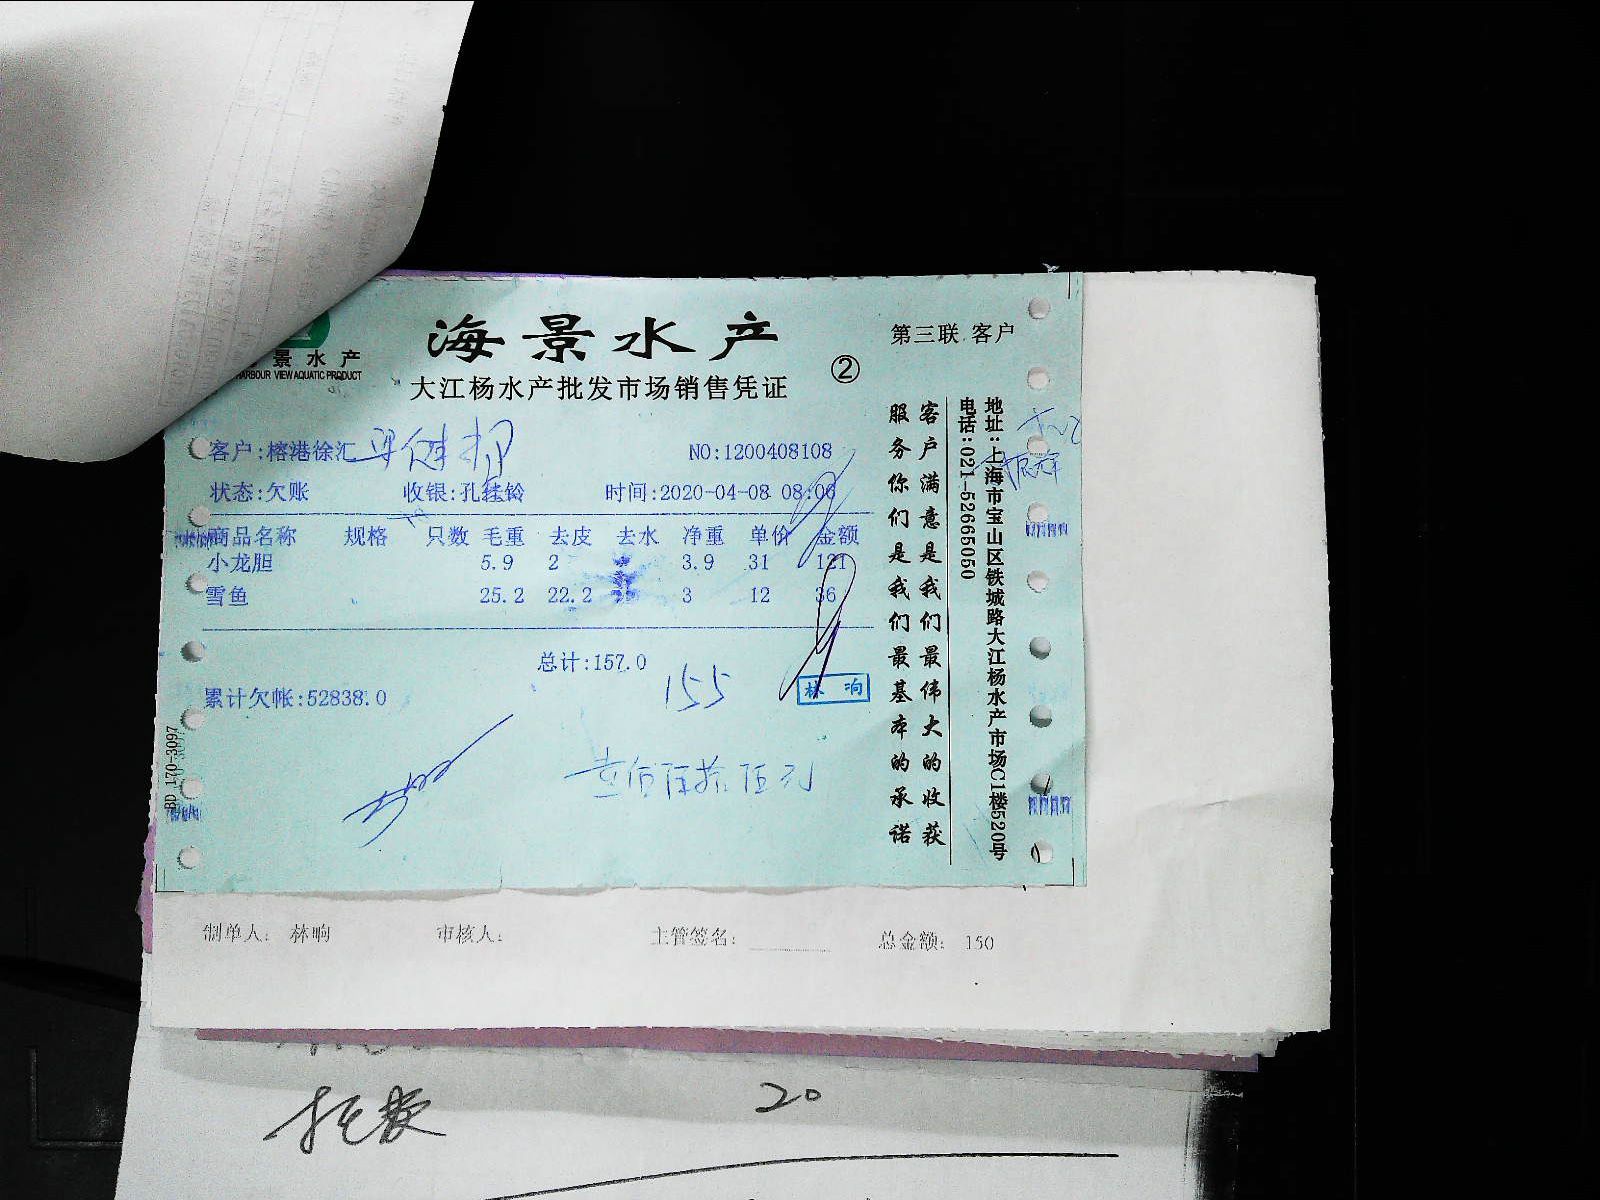 海景水产
第三联 客户
景水产
HARBOUR VIEW AQUATIC PRODUCT
大江杨水产批发市场销售凭证
②
客户:榕港徐汇
NO:1200408108
状态:欠账 收银:孔桂铃 时间:2020-04-08 08:06
商品名称 规格 只数 毛重 去皮 去水 净重 单价 金额
小龙胆 5.9 2 3.9 31 121
雪鱼 25.2 22.2 3 12 36
总计:157.0
155
林响
累计欠帐:52838.0
壹佰伍拾伍元
BD 170-3097
客户满意是我们最伟大的收获
服务你们是我们最基本的承诺
地址:上海市宝山区铁城路大江杨水产市场C1楼520号
电话:021-52665050
制单人: 林响 审核人: 主管签名: 总金额: 150
20